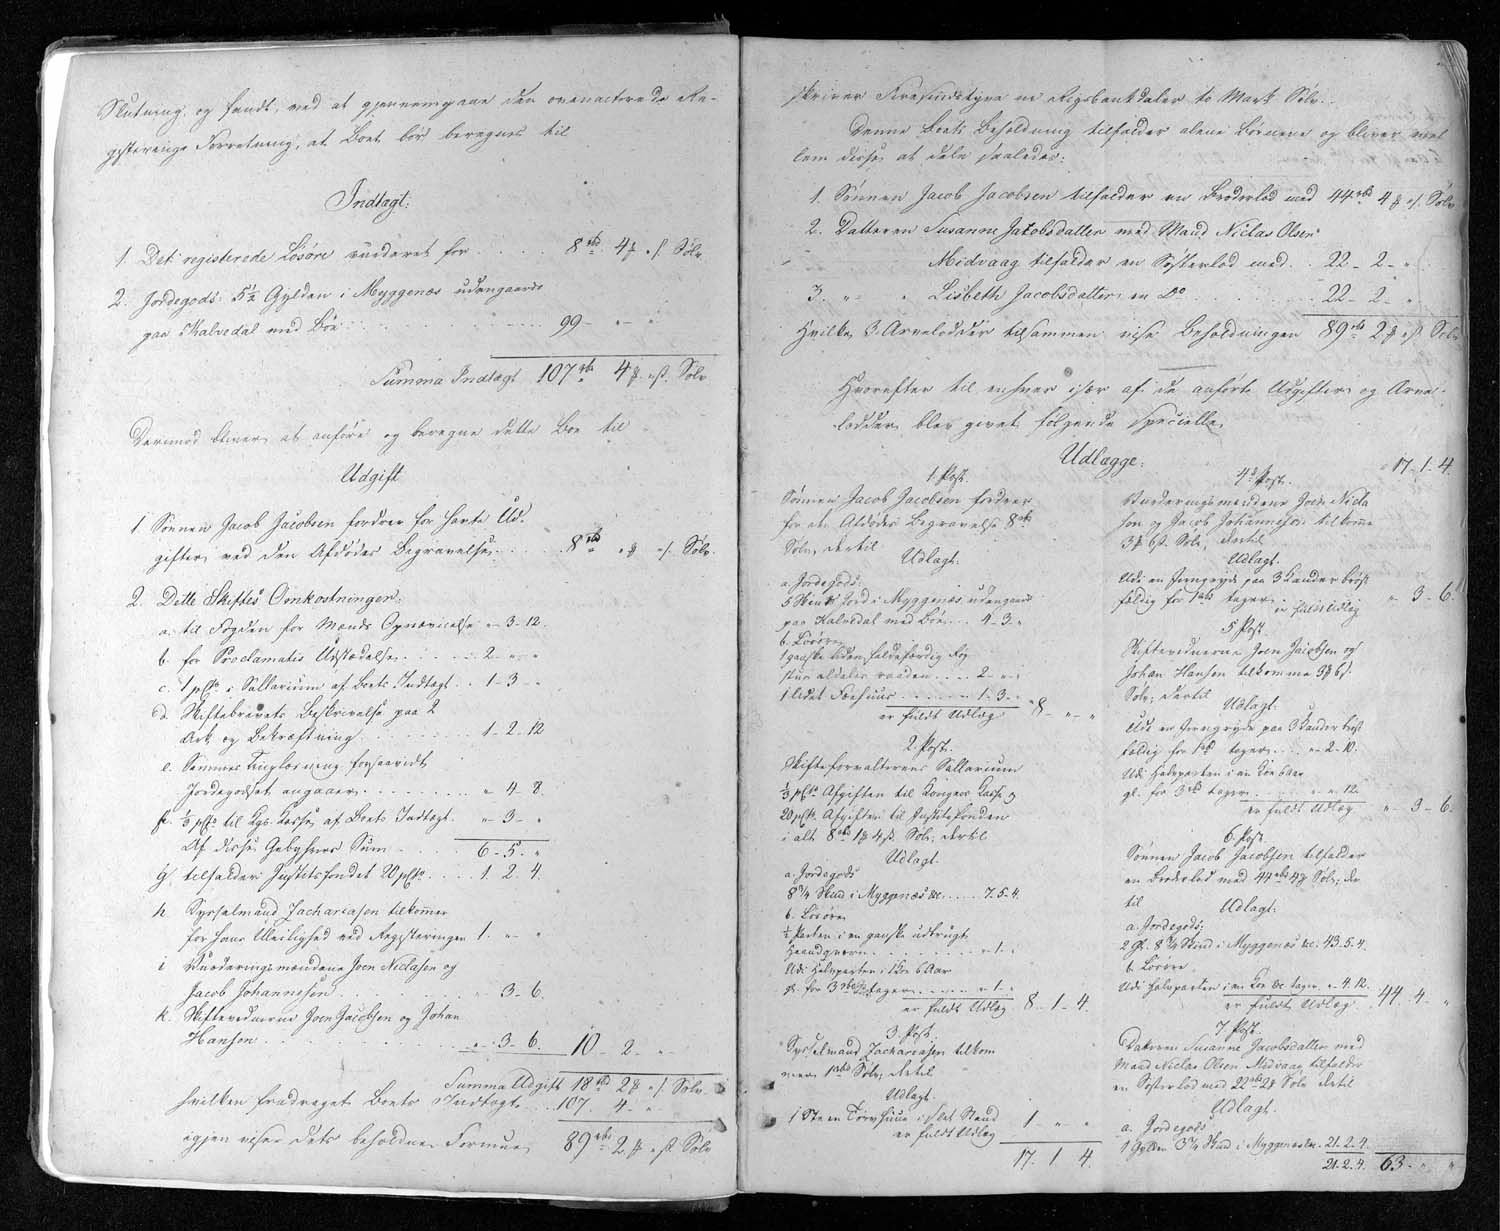 Slutning, og fandt, ved at gjennemgaae den ovenanførte Re-
gisterings Forretning, at Boet bør beregnes til
Indtægt:
1. Det registerede Løsøre vurderet for . . . . . 8 rbd 4 ß s. Sølv
2. Jordegods: 5½ Gylden i Myggenæs udengaards
paa Kalvedal med Bøe . . . . . 99 - " - "
Summa Indtægt 107 rbd 4 ß s. Sølv
Derimod bliver at anføre og beregne dette Boe til
Udgift
1. Sønnen Jacob Jacobsen fordrer for havte Ud-
gifter ved den Afdødes Begravelse . . . . 8 rbd " ß " s. Sølv
2. Dette Skiftes Omkostninger:
a. til Fogden for Mænds Opnævnelse " - 3 - 12.
b. for Proclamatis Udstædelse . . . . 2 - " - "
c. 1 pCto i Sallarium af Boets Indtægt . . 1 - 3 - "
d. Skiftebrevets Beskrivelse paa 2
Ark og Bekræftning . . . . 1 - 2 - 12
e. Sammes Tinglæsning forsaavidt
Jordegodset angaaer . . . . " 4 - 8.
f. ⅓ pCto til Kgs. Kasse af Boets Indtægt. " - 3 - "
Af disse Gebyhrers Sum . . . 6 - 5. "
g. tilfalder Justitsfondet 20 pCto . . . 1. 2. 4.
h. Sysselmand Zachariasen tilkommer
for hans Uleilighed ved Registeringen 1. " - "
i Vurderingsmændene Joen Niclasen og
Jacob Johannesen . . . . " 3 - 6.
k. Skiftevidnerne Joen Jacobsen og Johan
Hansen . . . . " 3 - 6. 10 - 2 - "
Summa Udgift 18 rbd 2 ß " s. Sølv
hvilken fradraget Boets Indtægt . . 107. 4 - "
igjen viser dets beholdne Formue 89 rbd 2 ß " s. Sølv
skriver Firesindstyve ni Rigsbankdaler to Mark Sølv.
Denne Boets Beholdning tilfalder alene Børnene og bliver mel-
lem disse at dele saaledes:
1. Sønnen Jacob Jacobsen tilfalder en Broderlod med 44 rbd 4 ß " s. Sølv
2. Datteren Susanne Jakobsdatter med Mand Niclas Olsen
Midvaag tilfalder en Søsterlod med . . 22 - 2 - "
3. " " Lisbeth Jacobsdatter en Do . . . . . 22 - 2 - "
Hvilke 3 Arvelodder tilsammen vise Beholdningen 89 rbd 2 ß " s. Sølv
Hvorefter til enhver især af de anførte Udgifter og Arve-
lodder blev givet følgende specielle
Udlægge:
1 Post.
Sønnen Jacob Jacobsen fordrer
for den Afdødes Begravelse 8 rbd
Sølv, dertil
Udlagt:
a. Jordegods:
5 Skind Jord i Myggenæs udengaards
paa Kalvedal med Bøe . . 4 - 3 - "
b. Løsøre
1 ganske liden faldefærdig Røg
stue aldeles raaden . . . . 2 - " "
1 lidet Fæehuus . . . . . 1. 3. "
er fuldt Udlæg " 8 - " - "
2. Post.
Skifteforvalterens Sallarium
⅓ pCto Afgiften til Kongens Kasse og
20 pCto Afgiften til Justitsfonden
i alt 8 rbd 1 ß 4 s. Sølv, dertil
Udlagt.
a. Jordegods
8¾ Skind i Myggenæs &c. . . . . 7. 5. 4.
b. Løsøre
½ Parten i en ganske udbrugt
Haandqværn . . . . . " 1. "
Udi Halvparten i 1 Koe 6 Aar
gl. for 3 rbd tages . . . . . " 1. "
er fuldt Udlæg 8 - 1 - 4.
3. Post.
Sysselmand Zachariasen tilkom
mer 1 rbd Sølv, dertil
Udlagt.
1 Steen Tørvhuus i slet Stand 1 - " "
er fuldt Udlæg
17. 1. 4.
" 17 - 1 - 4.
4de Post.
Vurderingsmændene Joen Nicla
sen og Jacob Johannesen tilkomme
3 ß 6 s. Sølv, dertil
Udlagt.
Udi en Jerngryde paa 3 Kander brøst
fældig for 1 rbd tages . . . " 3 - 6.
er fuldt Udlæg
5 Post.
Skiftevidnerne Joen Jacobsen og
Johan Hansen tilkomme 3 ß 6 s.
Sølv, dertil
Udlagt.
Udi en Jerngryde paa 3 Kander brøst
fældig for 1 rbd tages . . . " 2 - 10.
Udi Halvparten i en Koe 6 Aar
gl. for 3 rbd tages . . . " " 12.
er fuldt Udlæg " - 3 - 6.
6 Post
Sønnen Jacob Jacobsen tilfalder
en Broderlod med 44 rbd 4 ß Sølv, der
til Udlagt:
a. Jordegods:
2 gl. 8¾ Skind i Myggenæs &c. 43. 5. 4.
b. Løsøre.
Udi Halvparten i en Koe &c. tages " 4. 12.
er fuldt Udlæg 44. 4 - "
7 Post.
Datteren Susanne Jacobsdatter med
Mand Niclas Olsen Midvaag tilfalder
en Søsterlod med 22 rbd 2 ß Sølv dertil
Udlagt.
a. Jordegods
1 Gylden 3¼ Skind i Myggenæs &c. 21. 2. 4.
21. 2. 4. 63 - " "